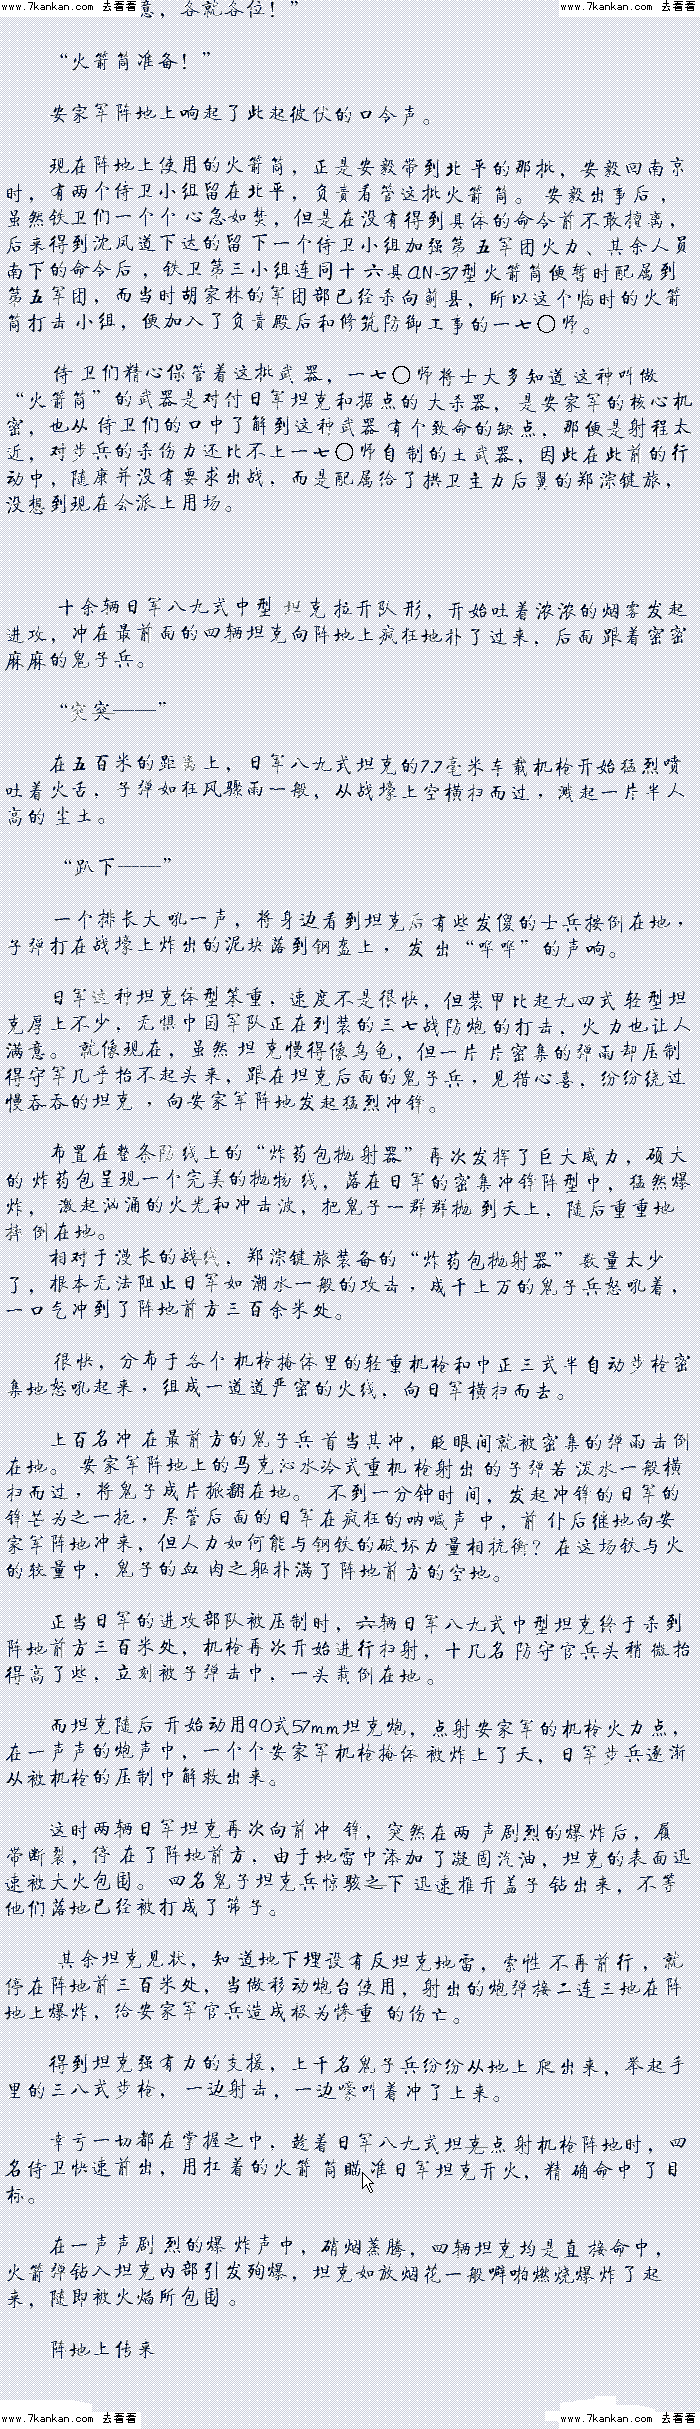 www.7kankan.com 去看看 www.7kankan.com 去看看
意，各就各位！”
“火箭筒准备！”
安家军阵地上响起了此起彼伏的口令声。
现在阵地上使用的火箭筒，正是安毅带到北平的那批，安毅回南京
时，有两个侍卫小组留在北平，负责看管这批火箭筒。安毅出事后，
虽然铁卫们一个个心急如焚，但是在没有得到具体的命令前不敢擅离，
后来得到沈凤道下达的留下一个侍卫小组加强第五军团火力、其余人员
南下的命令后，铁卫第三小组连同十六具AN-37型火箭筒便暂时配属到
第五军团，而当时胡家林的军团部已经杀向蓟县，所以这个临时的火箭
筒打击小组，便加入了负责殿后和修筑防御工事的一七〇师。
侍卫们精心保管着这批武器，一七〇师将士大多知道这种叫做
“火箭筒”的武器是对付日军坦克和据点的大杀器，是安家军的核心机
密，也从侍卫们的口中了解到这种武器有个致命的缺点，那便是射程太
近，对步兵的杀伤力还比不上一七〇师自制的土武器，因此在此前的行
动中，随康并没有要求出战，而是配属给了拱卫主力后翼的郑淙键旅，
没想到现在会派上用场。
十余辆日军八九式中型坦克拉开队形，开始吐着浓浓的烟雾发起
进攻，冲在最前面的四辆坦克向阵地上疯狂地扑了过来，后面跟着密密
麻麻的鬼子兵。
“突突———”
在五百米的距离上，日军八九式坦克的7.7毫米车载机枪开始猛烈喷
吐着火舌，子弹如狂风骤雨一般，从战壕上空横扫而过，溅起一片半人
高的尘土。
“趴下———”
一个排长大吼一声，将身边看到坦克后有些发傻的士兵按倒在地，
子弹打在战壕上炸出的泥块落到钢盔上，发出“哗哗”的声响。
日军这种坦克体型笨重，速度不是很快，但装甲比起九四式轻型坦
克厚上不少，无惧中国军队正在列装的三七战防炮的打击，火力也让人
满意。就像现在，虽然坦克慢得像乌龟，但一片片密集的弹雨却压制
得守军几乎抬不起头来，跟在坦克后面的鬼子兵，见猎心喜，纷纷绕过
慢吞吞的坦克，向安家军阵地发起猛烈冲锋。
布置在整条防线上的“炸药包抛射器”再次发挥了巨大威力，硕大
的炸药包呈现一个完美的抛物线，落在日军的密集冲锋阵型中，猛然爆
炸，激起汹涌的火光和冲击波，把鬼子一群群抛到天上，随后重重地
摔倒在地。
相对于漫长的战线，郑淙键旅装备的“炸药包抛射器”数量太少
了，根本无法阻止日军如潮水一般的攻击，成千上万的鬼子兵怒吼着，
一口气冲到了阵地前方三百余米处。
很快，分布于各个机枪掩体里的轻重机枪和中正三式半自动步枪密
集地怒吼起来，组成一道道严密的火线，向日军横扫而去。
上百名冲在最前方的鬼子兵首当其冲，眨眼间就被密集的弹雨击倒
在地。安家军阵地上的马克沁水冷式重机枪射出的子弹若泼水一般横
扫而过，将鬼子成片掀翻在地。不到一分钟时间，发起冲锋的日军的
锋芒为之一挫，尽管后面的日军在疯狂的呐喊声中，前仆后继地向安
家军阵地冲来，但人力如何能与钢铁的破坏力量相抗衡？在这场铁与火
的较量中，鬼子的血肉之躯扑满了阵地前方的空地。
正当日军的进攻部队被压制时，六辆日军八九式中型坦克终于杀到
阵地前方三百米处，机枪再次开始进行扫射，十几名防守官兵头稍微抬
得高了些，立刻被子弹击中，一头栽倒在地。
而坦克随后开始动用90式57mm坦克炮，点射安家军的机枪火力点，
在一声声的炮声中，一个个安家军机枪掩体被炸上了天，日军步兵逐渐
从被机枪的压制中解救出来。
这时两辆日军坦克再次向前冲锋，突然在两声剧烈的爆炸后，履
带断裂，停在了阵地前方，由于地雷中添加了凝固汽油，坦克的表面迅
速被大火包围。四名鬼子坦克兵惊骇之下迅速推开盖子钻出来，不等
他们落地已经被打成了筛子。
其余坦克见状，知道地下埋设有反坦克地雷，索性不再前行，就
停在阵地前三百米处，当做移动炮台使用，射出的炮弹接二连三地在阵
地上爆炸，给安家军官兵造成极为惨重的伤亡。
得到坦克强有力的支援，上千名鬼子兵纷纷从地上爬出来，举起手
里的三八式步枪，一边射击，一边嚎叫着冲了上来。
幸亏一切都在掌握之中，趁着日军八九式坦克点射机枪阵地时，四
名侍卫快速前出，用扛着的火箭筒瞄准日军坦克开火，精确命中了目
标。
在一声声剧烈的爆炸声中，硝烟蒸腾，四辆坦克均是直接命中，
火箭弹钻入坦克内部引发殉爆，坦克如放烟花一般噼啪燃烧爆炸了起
来，随即被火焰所包围。
阵地上传来
www.7kankan.com 去看看 www.7kankan.com 去看看